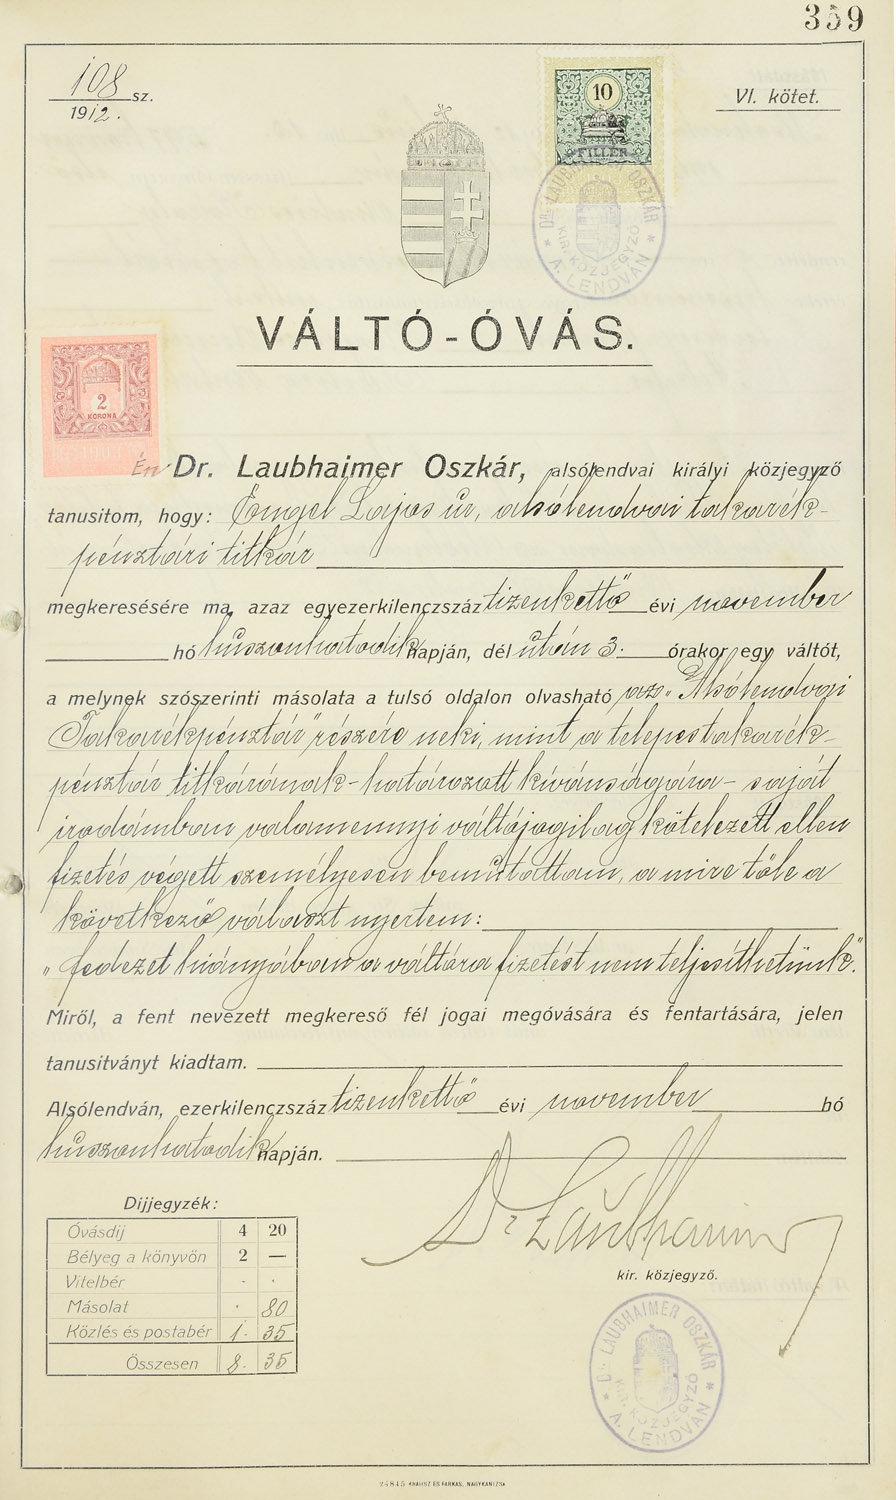 359
108 sz.
1912.
VI. kötet.
10
FILLÉR
DR LAUBHAIMER OSZKÁR
KIR. KÖZJEGYZŐ
A. LENDVÁN
VÁLTÓ-ÓVÁS.
2
KORONA
Én Dr. Laubhaimer Oszkár, alsólendvai királyi közjegyző
tanusitom, hogy: Engel Lajos úr, alsólendvai takarék-
pénztári titkár
megkeresésére ma, azaz egyezerkilenczszáz tizenkettő évi november
hó huszonhatodik napján, dél után 3. órakor egy váltót,
a melynek szószerinti másolata a tulsó oldalon olvasható az "Alsólendvai
Takarékpénztár" részére neki, mint a telepes takarék-
pénztár titkárának - határozott kivánságára - saját
irodámban valamennyi váltójogilag kötelezett ellen
fizetés végett személyesen bemutattam, a mire tőle a
következő választ nyertem:
"fedezet hiányában a váltóra fizetést nem teljesíthetünk."
Miről, a fent nevezett megkereső fél jogai megóvására és fentartására, jelen
tanusitványt kiadtam.
Alsólendván, ezerkilenczszáz tizenkettő évi november hó
huszonhatodik napján.
Dr Laubhaimer
kir. közjegyző.
Dijjegyzék:
Óvásdij 4 20
Bélyeg a könyvön 2 —
Vitelbér - -
Másolat · 80
Közlés és postabér 1. 35
Összesen 8. 35
DR LAUBHAIMER OSZKÁR
KIR. KÖZJEGYZŐ
A. LENDVÁN
24845 KRAUSZ ÉS FARKAS, NAGYKANIZSA